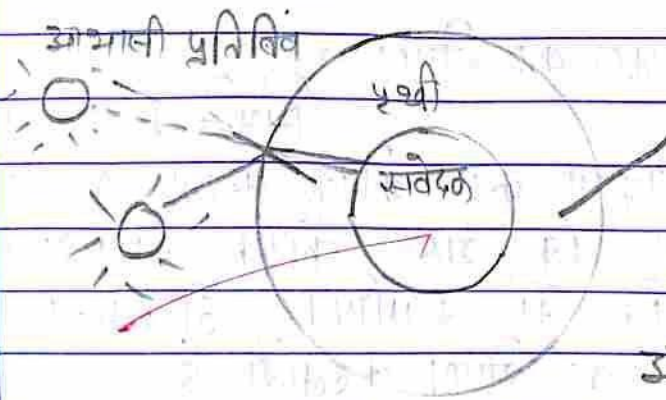 आभासी प्रतिबिंब
पृथ्वी
संवेदक